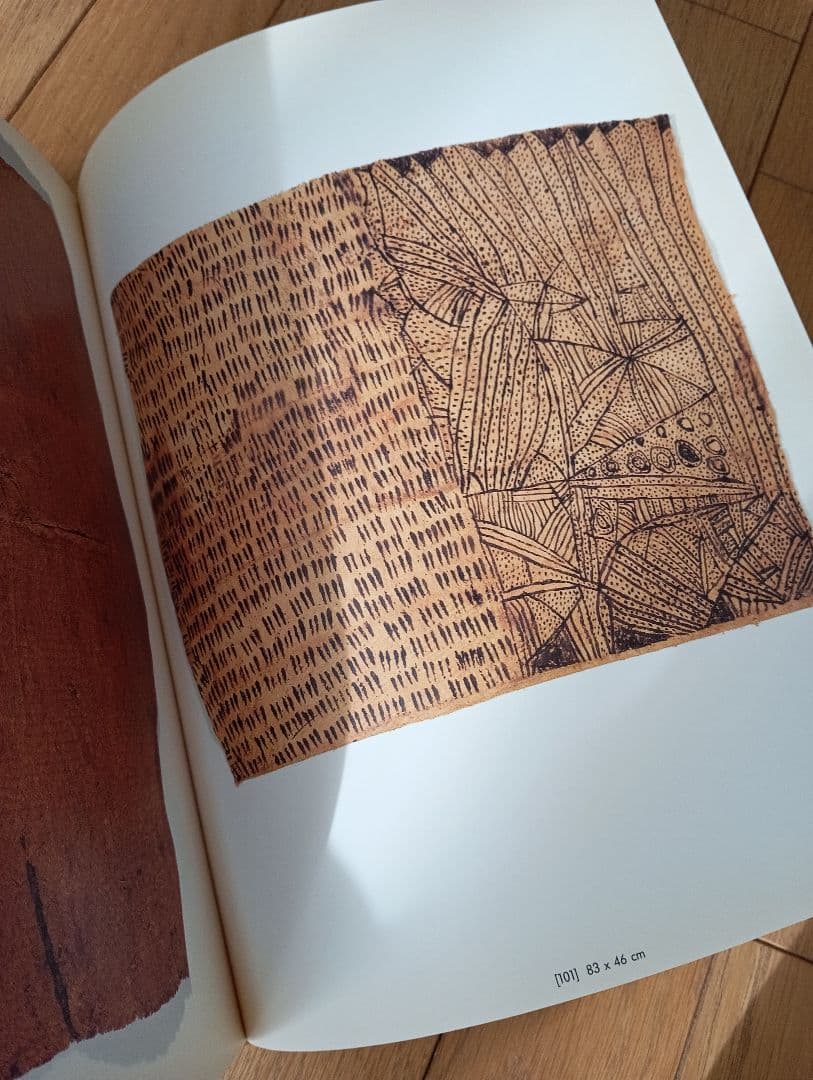 [101] 83 x 46 cm